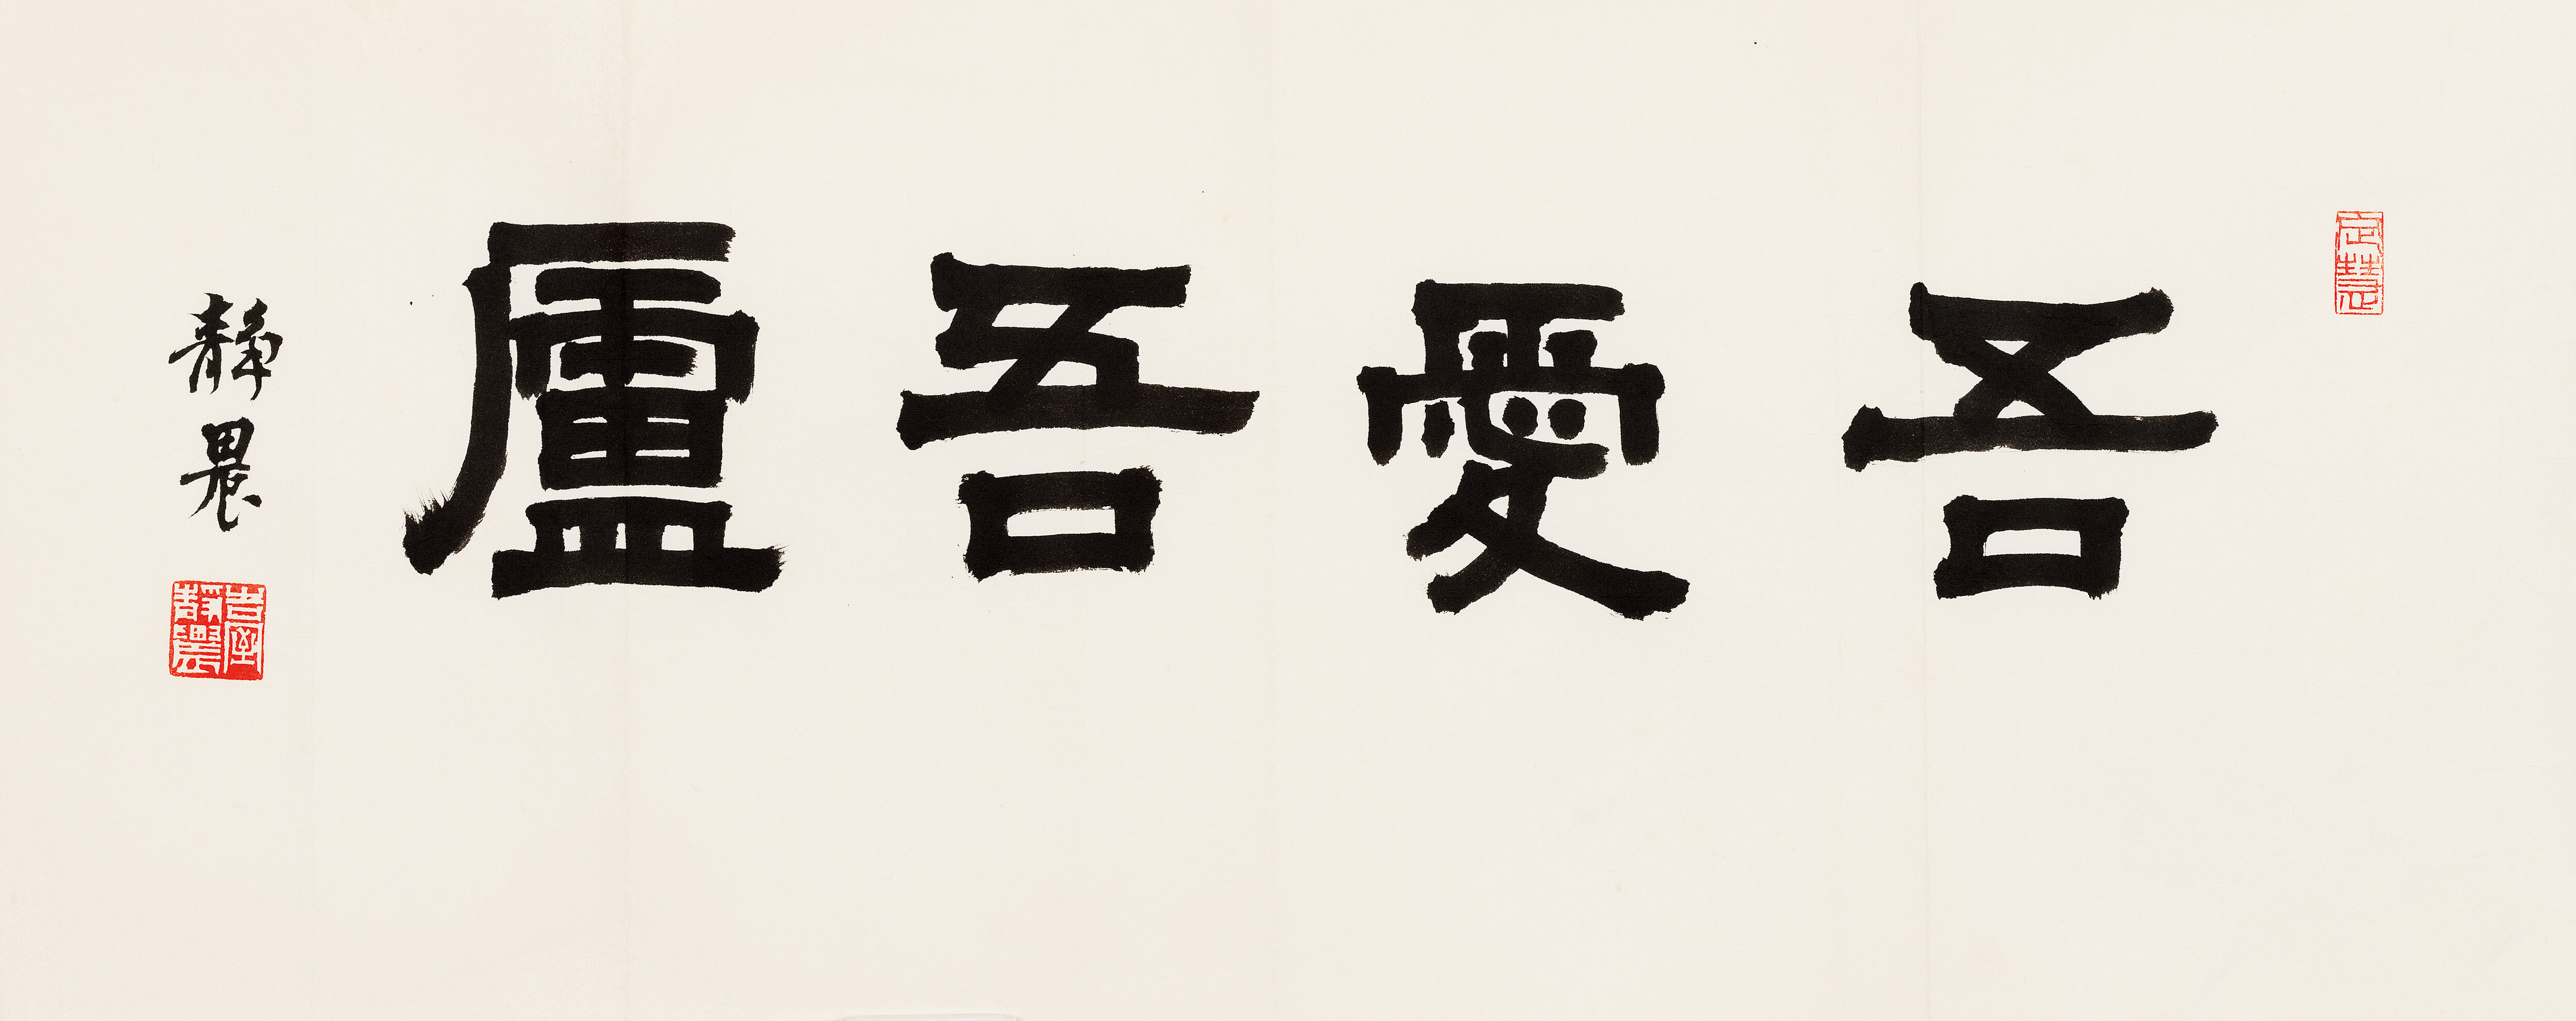 定慧
吾愛吾廬
靜農
臺靜農